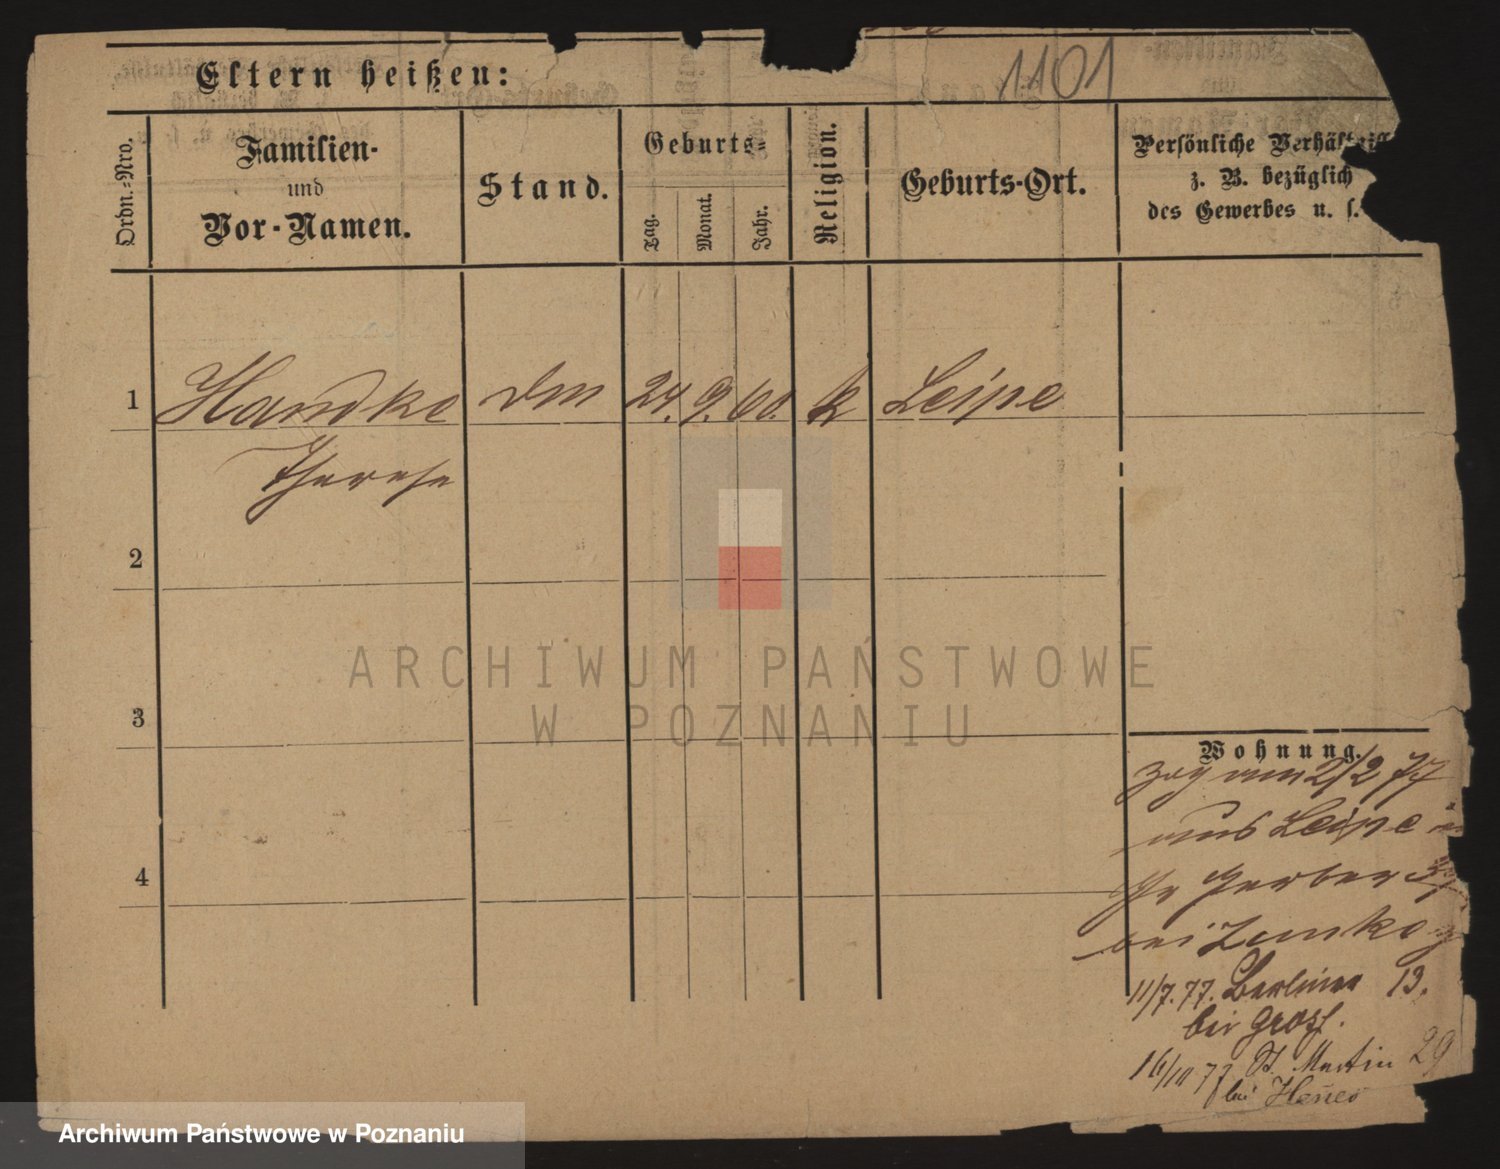 1101
Eltern heißen:
Ordn.-Nro.
Familien-
und
Vor-Namen.
Stand.
Geburts-
Tag.
Monat.
Jahr.
Religion.
Geburts-Ort.
Persönliche
z. B. bezüglich
des Gewerbes u. s.
1 Handke 24. 9. 60. k Leipe
Therese
2
3
4
Wohnung.
zog am 2/2 77
aus Leipe
Gr Gerber
bei
11/7. 77. Berliner 13.
bei Grosz.
16/10 77 St. Martin 29
bei
ARCHIWUM PAŃSTWOWE
W POZNANIU
Archiwum Państwowe w Poznaniu